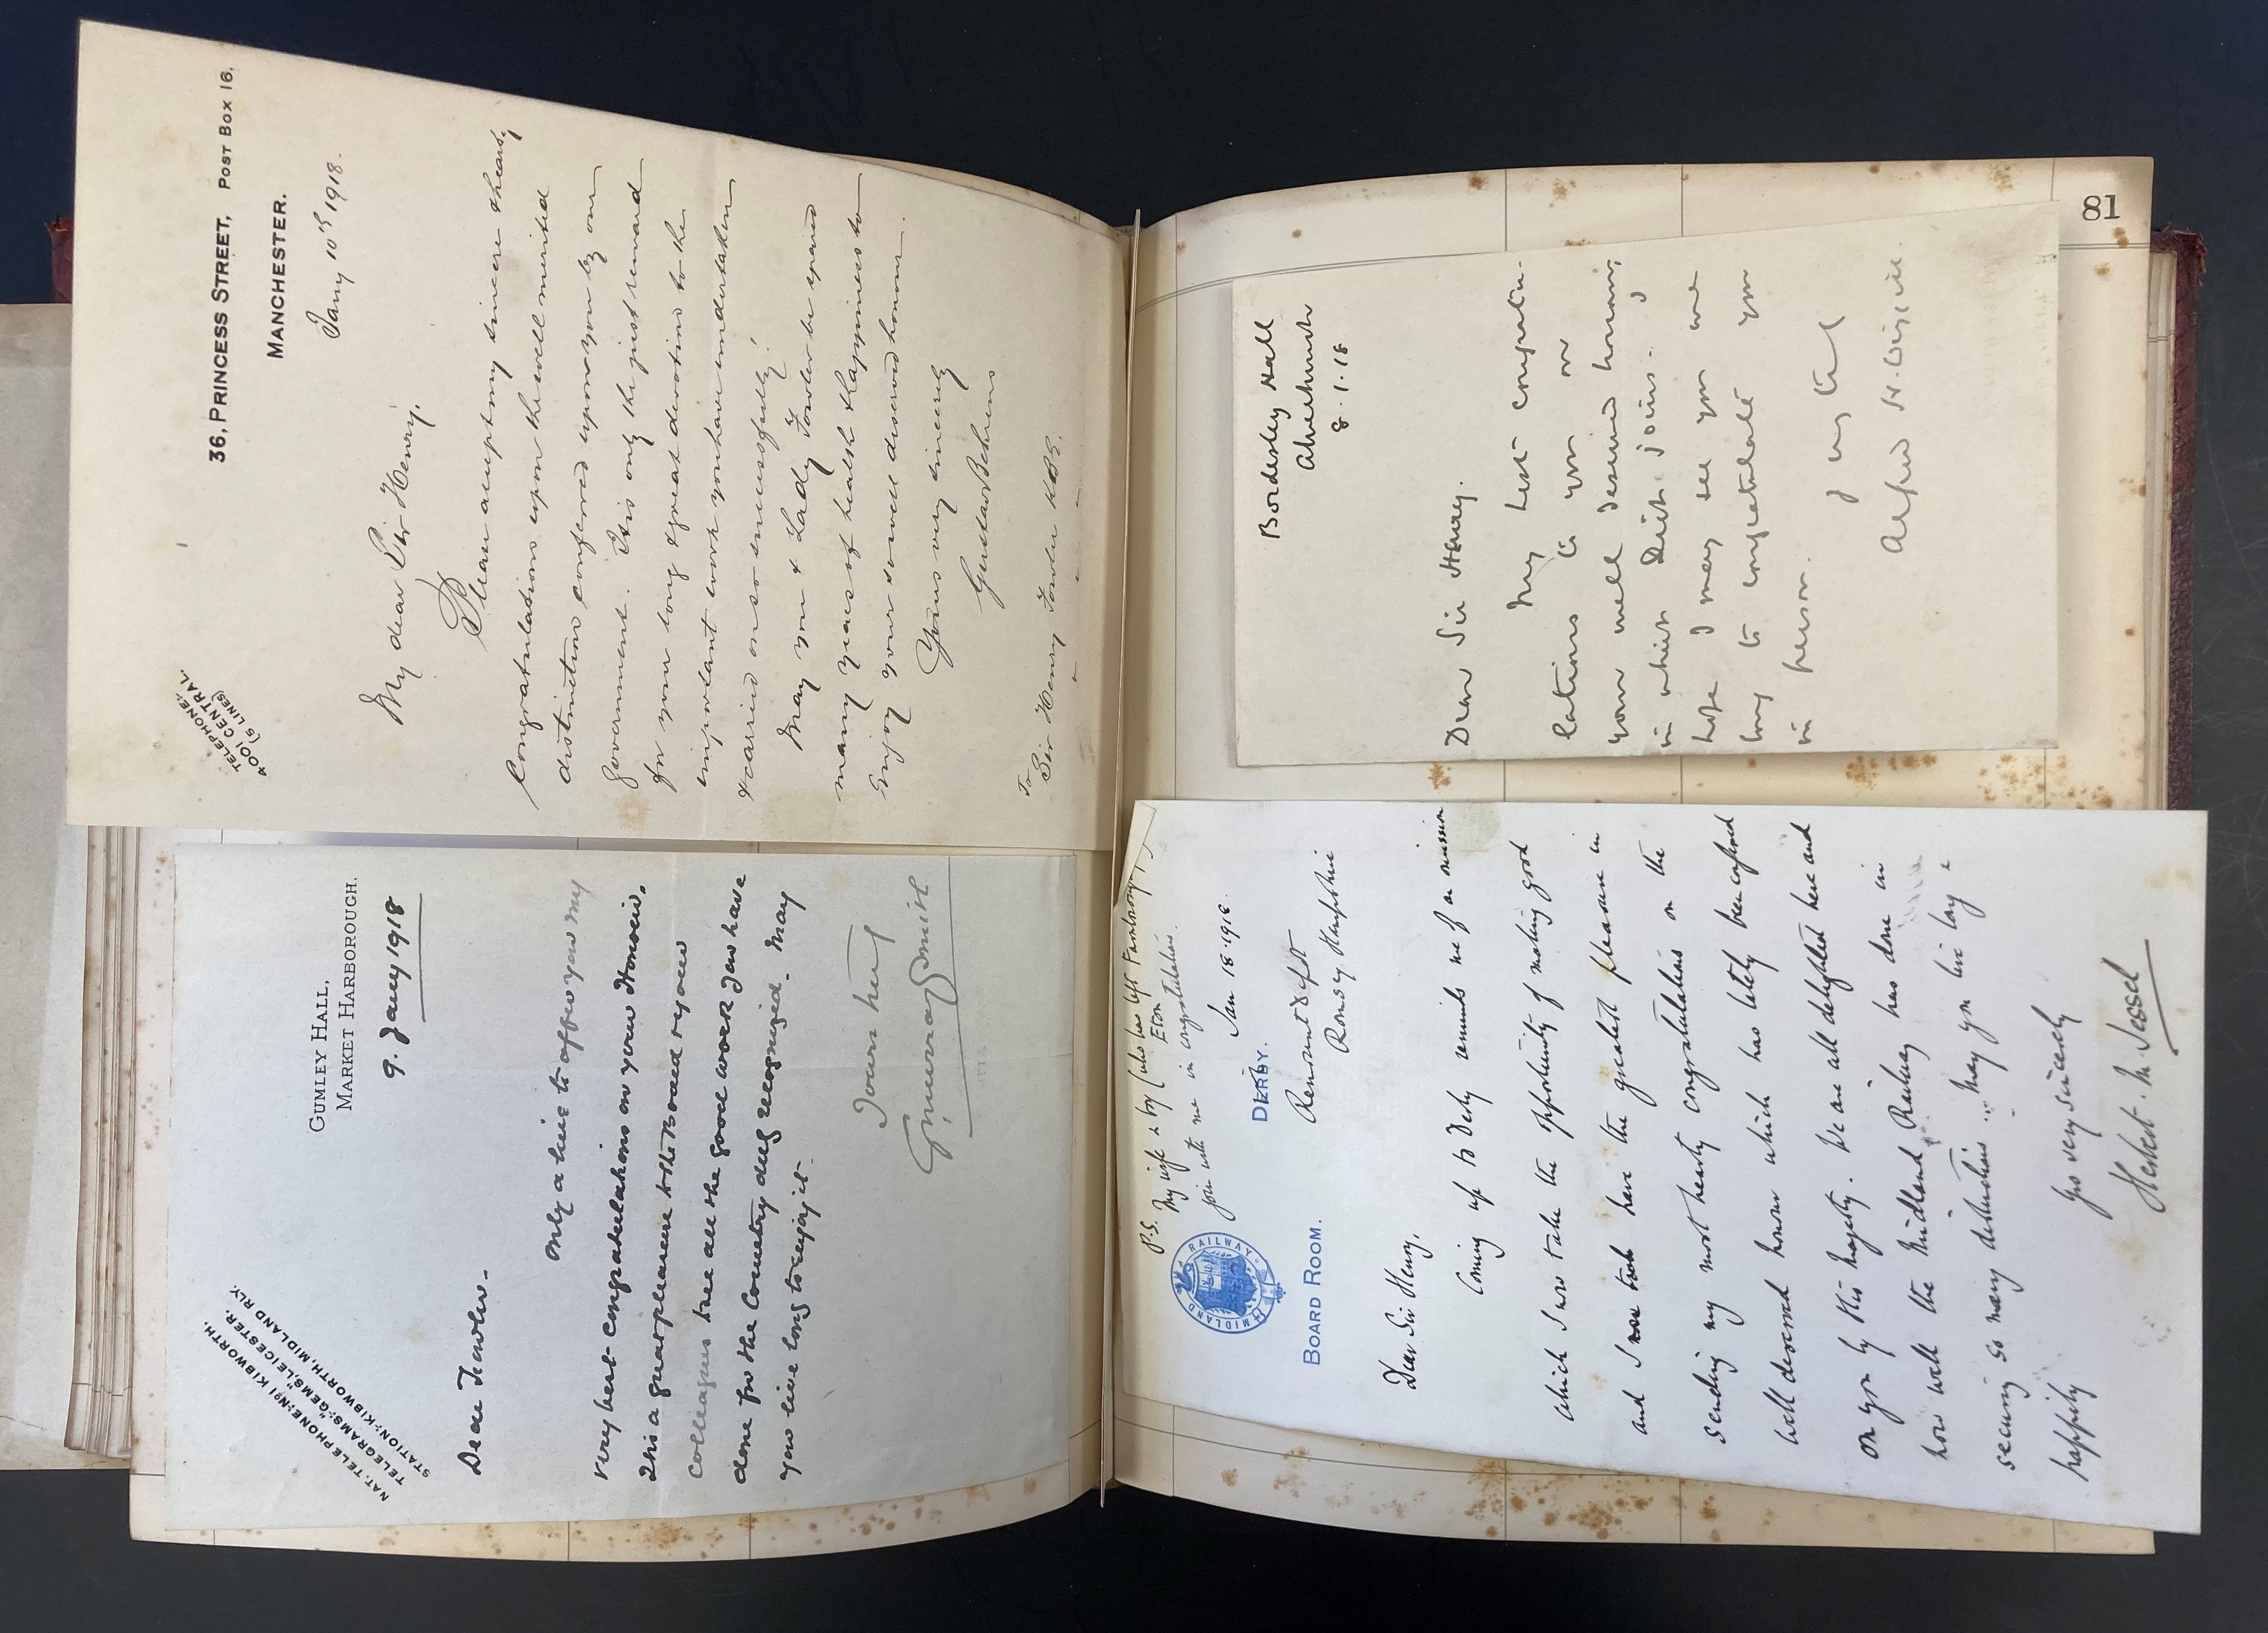 GUMLEY HALL,
MARKET HARBOROUGH.
NAT. TELEPHONE:- No 1 KIBWORTH.
TELEGRAMS:- "GEMS," LEICESTER.
STATION:- KIBWORTH, MIDLAND RLY.
9. Jany 1918
Dear Fowler -
Only a line to offer you my
very best congratulations on your Honour.
It is a great pleasure to the Board & your
colleagues to see all the good work you have
done for the Country duly recognized. May
you live long to enjoy it.
Yours truly
G. Murray Smith
36, PRINCESS STREET, POST BOX 16.
MANCHESTER.
TELEPHONE:-
4001 CENTRAL.
(5 LINES)
Jany 10th 1918.
My dear Sir Henry.
Please accept my sincere & hearty
Congratulations upon the well merited
distinction conferred upon you by our
Government. It is only the just reward
for your long & great devotion to the
important work you have undertaken
& carried on so successfully!
May you & Lady Fowler be spared
many years of health & happiness to
Enjoy your so well deserved honour.
Yours very sincerely
Gustav Behrens
To
Sir Henry Fowler KBE.
P.S. My wife & boy (who has left Farnborough
Eton
join with me in congratulations.
MIDLAND RAILWAY
Jan 18. 1918.
DERBY.
BOARD ROOM.
Remount Depot
Romsey Hampshire
Dear Sir Henry,
Coming up to Derby reminds me of an omission
which I now take the opportunity of making good
and I now take have the greatest pleasure in
sending my most hearty congratulations on the
well deserved honour which has lately been conferred
on you by His Majesty. We are all delighted here and
how well the Midland Railway has done in
securing so many distinctions. May you live long &
happily
Yrs very sincerely
Herbert M. Jessel
81
Bordesley Hall
Alvechurch
8.1.18
Dear Sir Henry.
My best congratu-
lations to you on
your well deserved honour,
in which Edith joins. I
hope I may see you one
long to congratulate you
in person.
Alfred H. Wiggin.